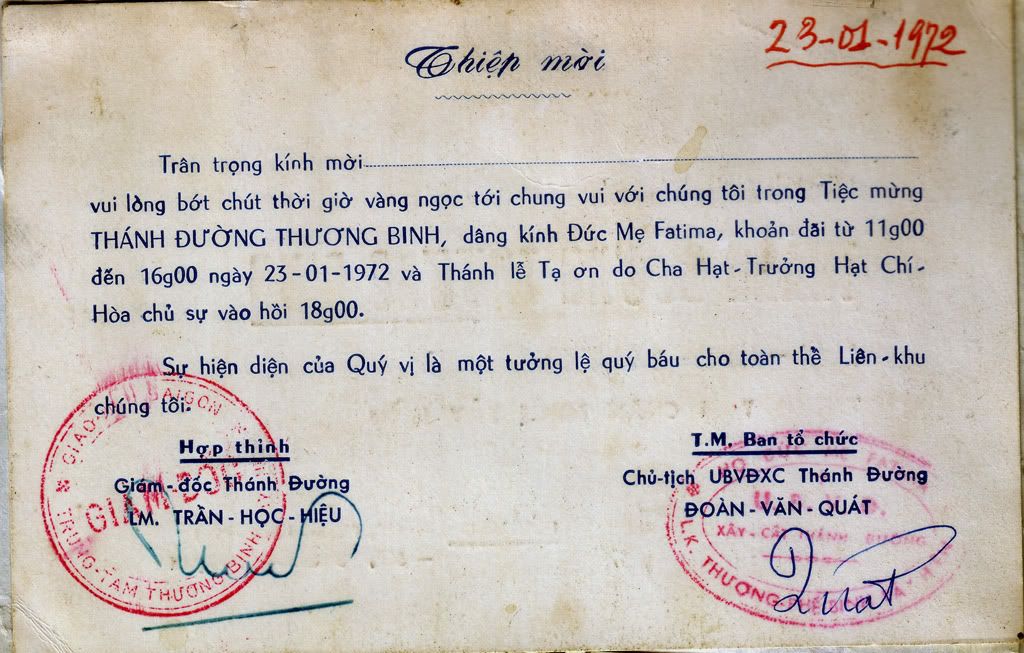 23-01-1972
Thiệp mời
Trân trọng kính mời
vui lòng bớt chút thời giờ vàng ngọc tới chung vui với chúng tôi trong Tiệc mừng
THÁNH ĐƯỜNG THƯƠNG BINH, dâng kính Đức Mẹ Fatima, khoản đãi từ 11g00
đến 16g00 ngày 23-01-1972 và Thánh lễ Tạ ơn do Cha Hạt-Trưởng Hạt Chí-
Hòa chủ sự vào hồi 18g00.
Sự hiện diện của Quý vị là một tưởng lệ quý báu cho toàn thể Liên-khu
chúng tôi.
Hợp thỉnh
Giám-đốc Thánh Đường
LM. TRẦN-HỌC-HIỆU
GIÁO SAIGON
GIÁM-ĐỐC
TRUNG-TÂM THƯƠNG BINH
T.M. Ban tổ chức
Chủ-tịch UBVĐXC Thánh Đường
ĐOÀN-VĂN-QUÁT
XÂY-CẤT THÁNH ĐƯỜNG
L.K. THƯƠNG
Quát